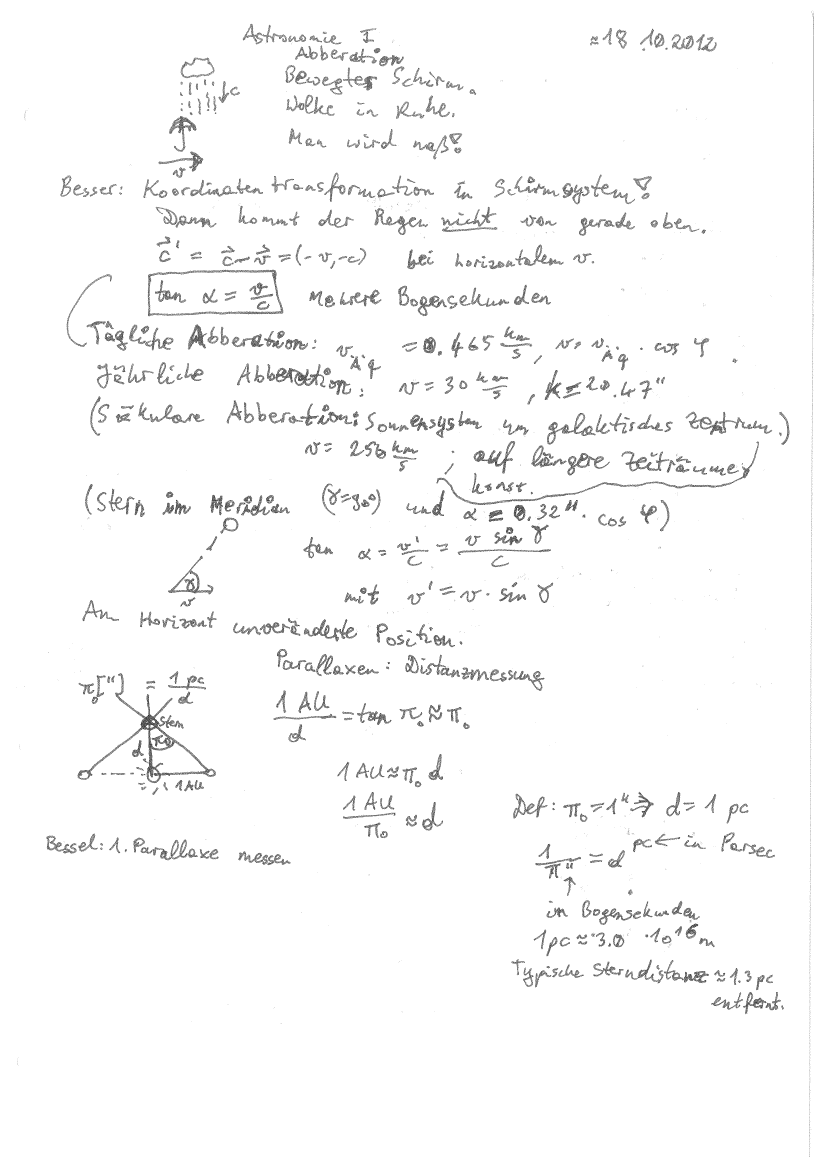 Astronomie I
≈18 10.2012
Abberation
Bewegter Schirm.
Wolke in Ruhe.
Man wird naß!
c
v
Besser: Koordinatentransformation in Schirmsystem!
Dann kommt der Regen nicht von gerade oben.
c⃗' = c⃗-v⃗ = (-v,-c) bei horizontalem v.
tan α = v/c Mehrere Bogensekunden
Tägliche Abberation: v_Äq = 0.465 km/s, v = v_Äq · cos φ.
Jährliche Abberation: v = 30 km/s, k = 20.47"
(Säkulare Abberation: Sonnensystem um galaktisches Zentrum.)
v = 250 km/s; auf längere Zeiträume
konst.
(Stern im Meridian (γ=90°) und α = 0.32" · cos φ)
tan α = v'/c = v sin γ / c
γ
v
mit v' = v · sin γ
Am Horizont unveränderte Position.
Parallaxen: Distanzmessung
π₀["] = 1 pc / d
Stern
π₀
d
1 AU
1 AU / d = tan π₀ ≈ π₀
1 AU ≈ π₀ d
1 AU / π₀ ≈ d
Bessel: 1. Parallaxe messen
Def: π₀ = 1" ⇒ d = 1 pc
1 / π" = d pc ← in Parsec
↑
in Bogensekunden
1 pc ≈ 3.0 · 10¹⁶ m
Typische Sterndistanz ≈ 1.3 pc
entfernt.